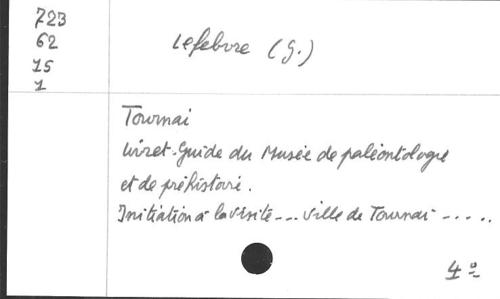 723
62
15
1
Lefebvre (G.)
Tournai
Livret-Guide du Musée de paléontologie
et de préhistoire.
Initiation à la visite --- Ville de Tournai -----
4°